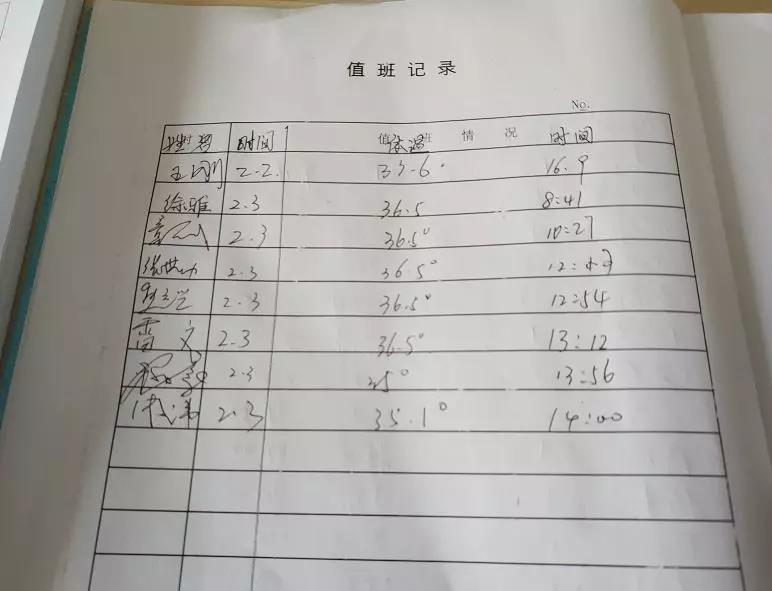 值班记录
No.
姓名 时间 值班情况 体温 时间
王刚 2.2. 16.9
徐雅 2.3 36.5 8:41
2.3 36.5° 10:27
2.3 36.5° 12:
2.3 36.5° 12:54
雷文 2.3 36.5° 13:12
2.3 13:56
2.3 35.1° 14:00